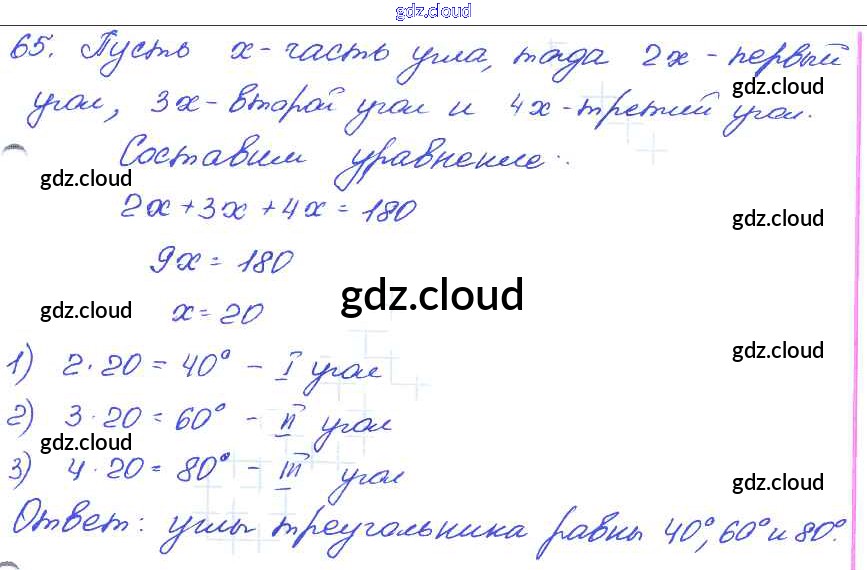 gdz.cloud
65. Пусть x - часть угла, тогда 2x - первый
gdz.cloud
угол, 3x - второй угол и 4x - третий угол.
Составим уравнение:
gdz.cloud
2x + 3x + 4x = 180
gdz.cloud
9x = 180
gdz.cloud
gdz.cloud
x = 20
gdz.cloud
1) 2 · 20 = 40° - I угол
2) 3 · 20 = 60° - II угол
gdz.cloud
3) 4 · 20 = 80° - III угол
gdz.cloud
Ответ: углы треугольника равны 40°, 60° и 80°.